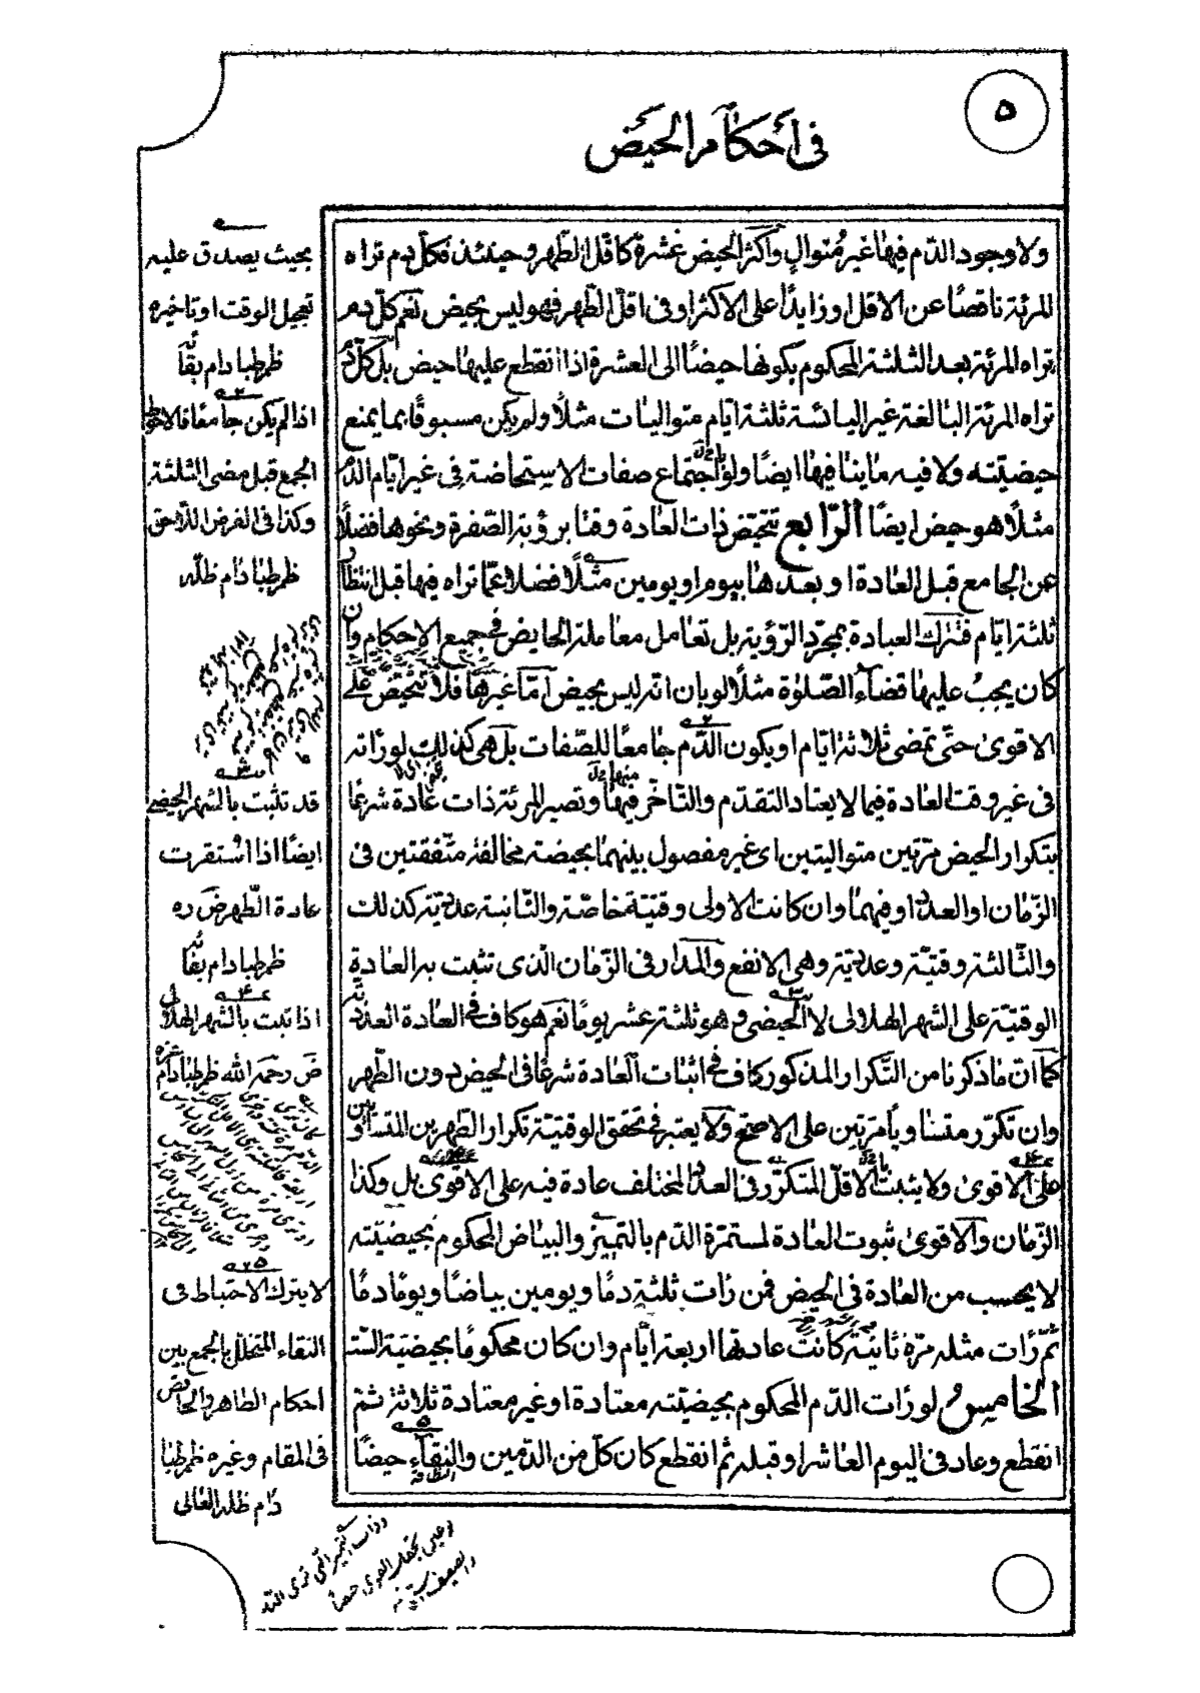 ۵
في أحكام الحيض
ولا وجود الدّم فيها غير مُتوالٍ وأكثر الحيض عشرة كأقل الطّهر وحينئذ فكلّ دم تراه
المرئة ناقصًا عن الاقل او زايدًا على الاكثر او في اقلّ الطّهر فهو ليس بحيض نعم كلّ دم
تراه المرئة بعد الثلثة المحكوم بكونها حيضًا الى العشرة اذا انقطع عليها حيض بل كلّ دم
تراه المرئة البالغة غير اليائسة ثلثة ايّام متواليات مثلًا ولم يكن مسبوقًا بما يمنع
حيضيّته ولا فيه ما ينافيها ايضًا ولو باجتماع صفات الاستحاضة في غير ايّام الدّم
مثلًا هو حيض ايضًا الرّابع تتحيّض ذات العادة وقتا برؤية الصّفرة ونحوها فضلًا
عن الجامع قبل العادة او بعدها بيوم او يومين مثلًا فضلا عمّا تراه فيها قبل انتظار
ثلثة ايّام فتترك العبادة بمجرّد الرّؤية بل تعامل معاملة الحايض في جميع الاحكام وان
كان يجب عليها قضاء الصّلوة مثلًا لو بان انه ليس بحيض امّا غيرها فلا تتحيّض على
الاقوى حتّى تمضى ثلاثة ايّام او يكون الدّم جامعًا للصّفات بل هى كذلك لو رأته
فى غير وقت العادة فيما لا يعتاد التقدّم والتّاخّر فيها منها وتصير المرئة ذات عادة شرعًا
بتكرار الحيض مرّتين متواليتين اى غير مفصول بينهما بحيضة مخالفة متّفقتين فى
الزّمان او العدد او فيهما وان كانت الاولى وقتيّة خاصّة والثّانية عدديّة كذلك
والثّالثة وقتيّة وعدديّة وهى الانفع والمدار فى الزّمان الّذى تثبت به العادة
الوقتيّة على الشهر الهلالى لا الحيضى وهو ثلثة عشر يومًا نعم هو كاف فى العادة العدديّة
كما انّ ما ذكرنا من التّكرار المذكور كاف فى اثبات العادة شرعًا فى الحيض دون الطّهر
وان تكرّر متساويا مرّتين على الاصحّ ولا يعتبر فى تحقق الوقتيّة تكرار الطّهرين المتساويين
على الاقوى ولا يثبت بالاقلّ المتكرّر فى العدد المختلف عادة فيه على الاقوى بل وكذا
الزّمان والاقوى ثبوت العادة لمستمرّة الدّم بالتّمييز والبياض المحكوم بحيضيّته
لا يحسب من العادة فى الحيض فمن رأت ثلثة دمًا ويومين بياضًا ويومًا دمًا
ثمّ رأت مثله مرّة ثانية كانت عادتها اربعة ايّام وان كان محكومًا بحيضيّة السّتة
الخامس لو رأت الدّم المحكوم بحيضيّته معتادة او غير معتادة ثلاثة ثمّ
انقطع وعاد فى اليوم العاشر او قبله ثم انقطع كان كلّ من الدّمين والنقاء حيضًا
بحيث يصدق عليه
تعجيل الوقت او تاخيره
ظم طبا دام بقاه
اذا لم يكن جامعًا فالاحوط
الجمع قبل مضى الثلثة
وكذا فى الفرض اللّاحق
ظم طبا دام ظلّه
قد تثبت بالشهر الحيضى
ايضًا اذا استقرت
عادة الطّهر ض ره
ظم طبا دام بقاه
اذا ثبت بالشهر الهلالى
ض رحمه الله ظم طبا دام
لا يترك الاحتياط فى
النقاء المتخلل بالجمع بين
احكام الطاهر والحايض
فى المقام وغيره ظم طبا
دام ظله العالى